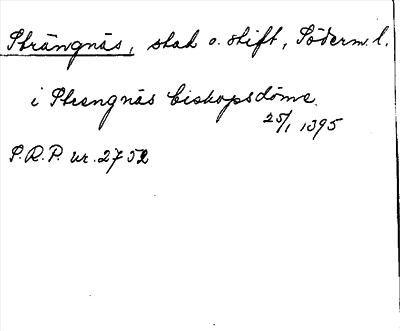 Strängnäs, stad o. stift, Söderm. l.
i Strengnäs biskopsdöme.
25/1 1395
S.R.P. nr. 2752